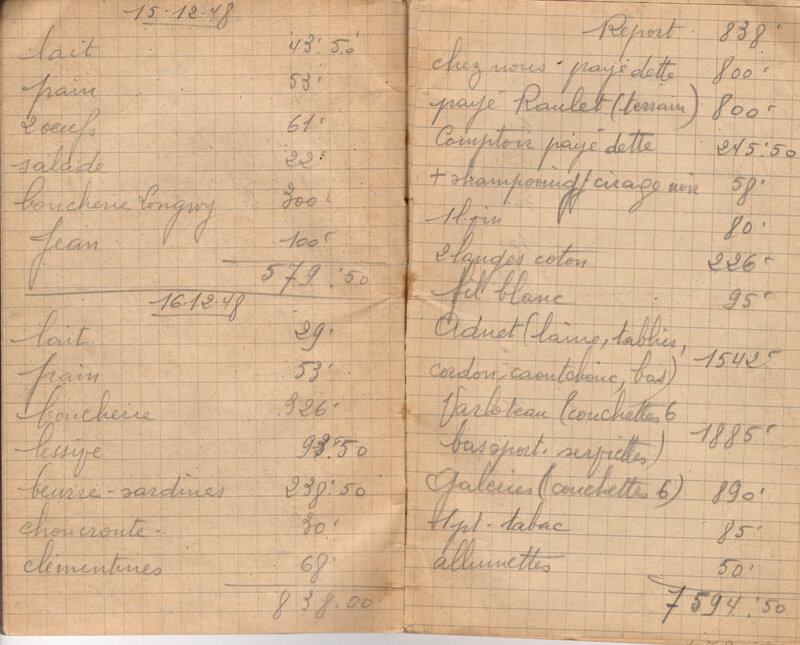 15-12-48
lait 43'50
pain 53'
2 oeufs 61'
salade 22'
boucherie Longwy 300'
Jean 100'
579'50
16-12-48
lait 29'
pain 53'
boucherie 326'
lessive 93'50
beurre-sardines 238'50
choucroute- 30'
clémentines 68'
838.00
Report 838'
chez nous payé dette 800'
payé Raulet (terrain) 800'
Comptoir payé dette 245'50
+ shampooing / cirage noir 58'
1 l. vin 80'
2 langes coton 226'
fil blanc 95'
Adnet (laine, tablier,
cordon, caoutchouc, bas) 1542'
Varloteau (couchettes 6
bas sport-serviettes) 1885'
Galeries (couchettes 6) 890'
+1 pt-tabac 85'
allumettes 50'
7594'50